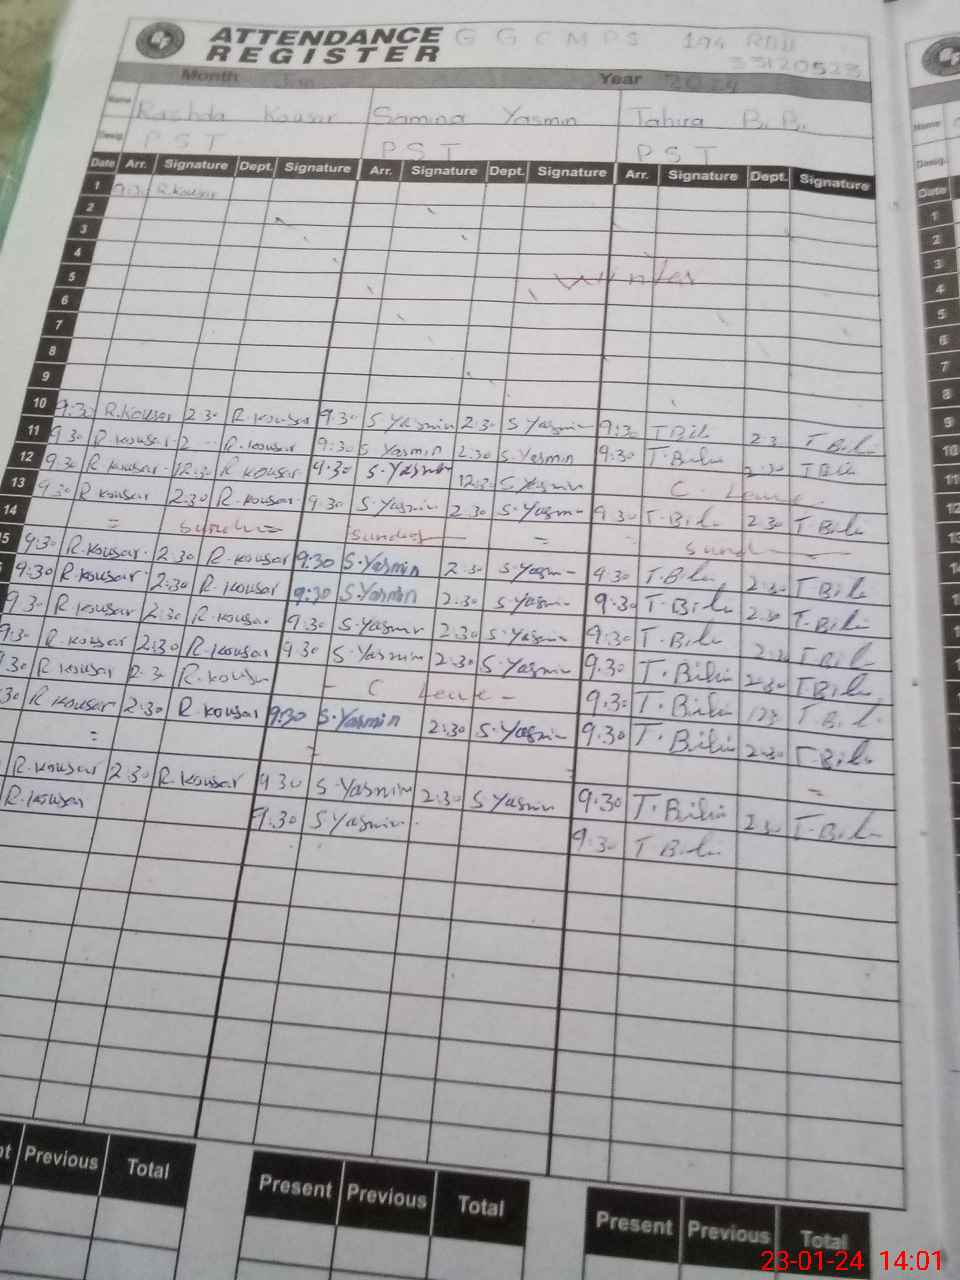 ATTENDANCE REGISTER G G C M P S 194 RBII
33120523
Month Jan Year 2024
Name Rashda Kousar Samina Yasmin Tahira B.B.
Desig. PST PST PST
Date Arr. Signature Dept. Signature Arr. Signature Dept. Signature Arr. Signature Dept. Signature
1 9:30 R.Kousar
2
3
4
5 Winter
6
7
8
9
10 9:30 R.Kousar 2:30 R.Kousar 9:30 S.Yasmin 2:30 S.Yasmin 9:30 T.Bibi 2:30 T.Bibi
11 9:30 R.Kousar 2 R.Kousar 9:30 S.Yasmin 2:30 S.Yasmin 9:30 T.Bibi 2:30 T.Bibi
12 9:30 R.Kousar 12:30 R.Kousar 9:30 S.Yasmin 12:30 S.Yasmin C. Leave
13 9:30 R.Kousar 2:30 R.Kousar 9:30 S.Yasmin 2:30 S.Yasmin 9:30 T.Bibi 2:30 T.Bibi
14 = Sunday = Sunday = Sunday =
5 9:30 R.Kousar 2:30 R.Kousar 9:30 S.Yasmin 2:30 S.Yasmin 9:30 T.Bibi 2:30 T.Bibi
9:30 R.Kousar 2:30 R.Kousar 9:30 S.Yasmin 2:30 S.Yasmin 9:30 T.Bibi 2:30 T.Bibi
9:30 R.Kousar 2:30 R.Kousar 9:30 S.Yasmin 2:30 S.Yasmin 9:30 T.Bibi 2:30 T.Bibi
9:30 R.Kousar 2:30 R.Kousar 9:30 S.Yasmin 2:30 S.Yasmin 9:30 T.Bibi 2:30 T.Bibi
:30 R.Kousar 2:30 R.Kousar - C Leave - 9:30 T.Bibi 12:30 T.Bibi
:30 R.Kousar 2:30 R.Kousar 9:30 S.Yasmin 2:30 S.Yasmin 9:30 T.Bibi 2:30 T.Bibi
= = = =
R.Kousar 2:30 R.Kousar 9:30 S.Yasmin 2:30 S.Yasmin 9:30 T.Bibi 2:30 T.Bibi
R.Kousar 9:30 S.Yasmin 9:30 T.Bibi
Previous Total Present Previous Total Present Previous Total
Name
Desig.
Date
1
2
3
4
5
6
7
8
9
10
11
12
23-01-24 14:01